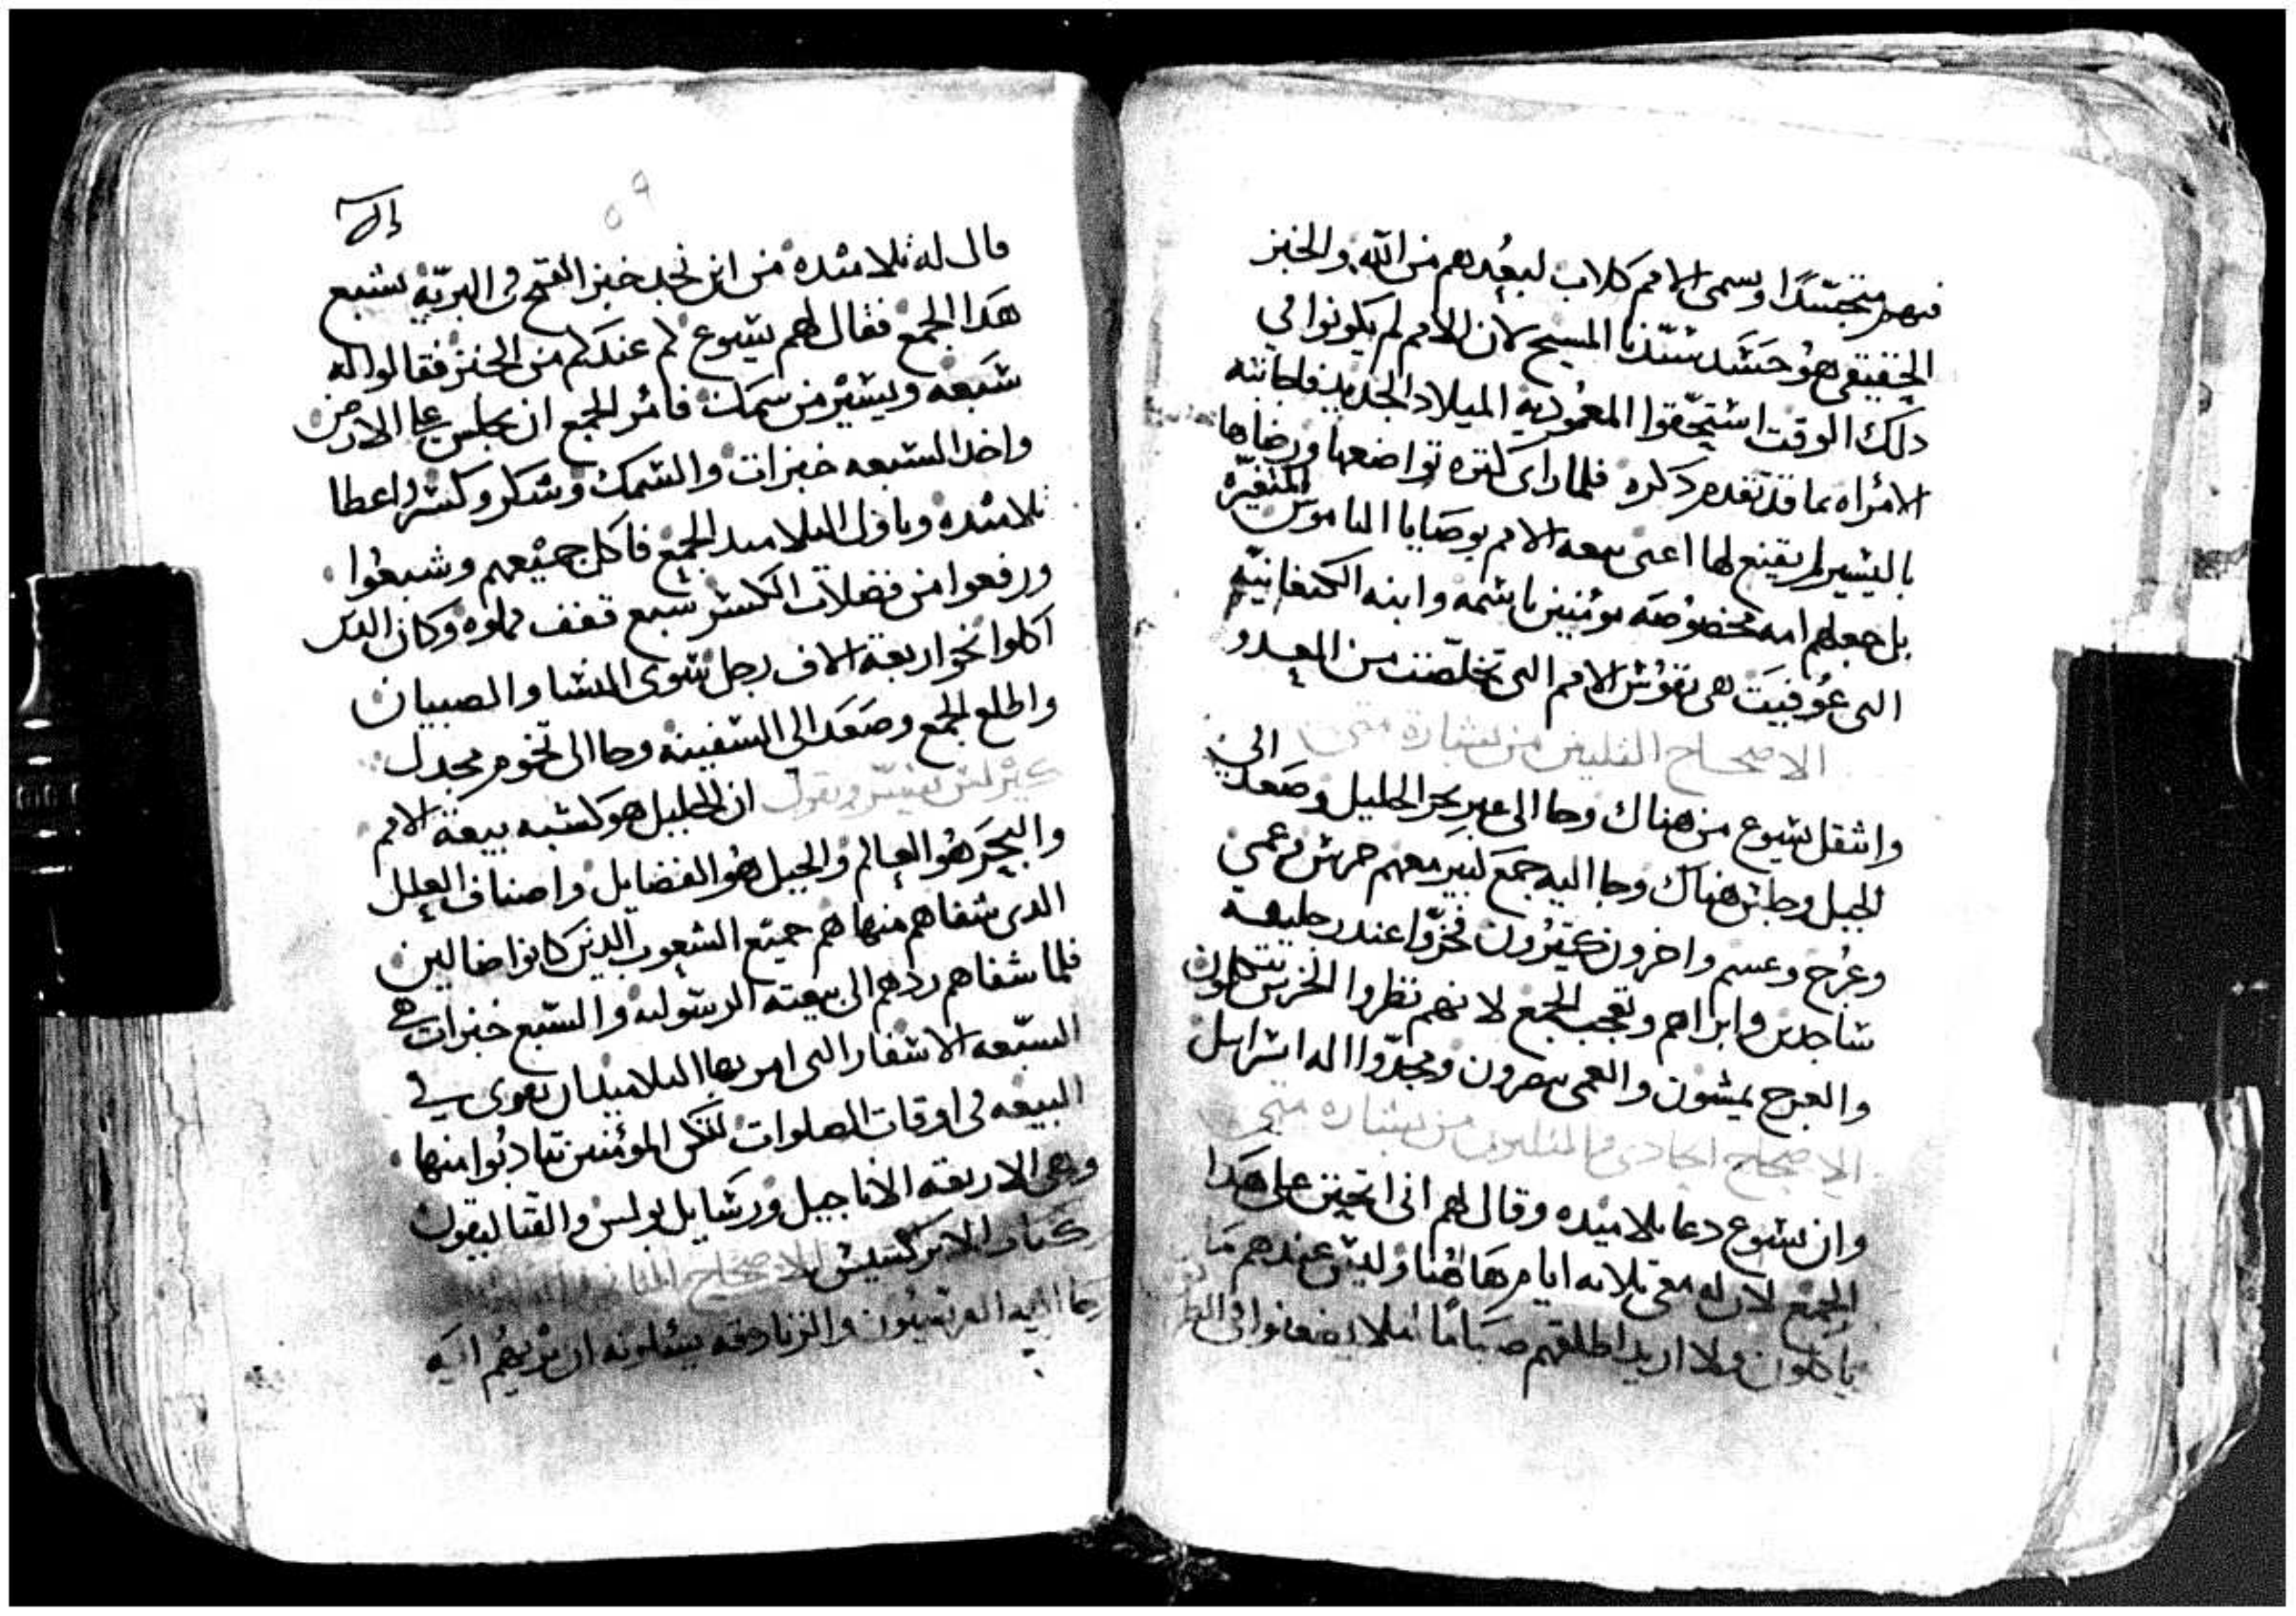 فيهم متجسدًا وسمى الامم كلاب لبعُدهم من الله والخبز
الحقيقي هو جسَد سيّدنا المسيح لان الامم لم يكونوا في
دلك الوقت استحّقوا المعُمودية الميلاد الجديد فاجابته
الامراه بما قد تقدم دكره فلما راى كتره تواضعها ورضاها
باليسير لم يقنع لها اعنى بيعه الامم بوصَايا الناموس المتغيّره
بل جعلهم امه مخصُوصَه مومنين باسمه وابنه الكنعانيّه
التى عُوفيَت هى نفوس الامم التى تخلّصت من العدو
الاصحاح التلتين من بشارة متى
وانتقل يسوع من هناك وجا الى عبر بحر الجليل وصَعد الى
الجبل وجلس هناك وجا اليه جمَع كبير معهم خرس وعمى
وعُرج وعسم واخرون كتيرُون فخرّوا عند رجليه
ساجدين وابراهم وتعجب الجمع لانهم نظروا الخرس يتكلمون
والعرج يمشون والعمى يبصرون ومجدّوا اله اسرايل
الاصحاح الحادى والتلتون من بشاره متى
وان يسوع دعا تلاميده وقال لهم انى اتحنن على هَدا
الجمع لان له معى تلاته ايام هَاهُنا وليس عندهم مَا
ياكلون ولا اريد اطلقهم صيَامًا ليلا يضعفوا فى الطر
ولا
٥٩
قال له تلاميده من اين نجد خبز القمح فى البريّة يشبع
هَدا الجمع فقال لهم يسوع كم عندكم من الخبز فقالوا له
سَبعه ويسير من سَمَك فامر الجمع ان يجلس على الارض
واخد السبعه خبزات والسَمك وشكر وكسر واعطا
تلاميده وناول التلاميد الجمع فاكل جميعهم وشبعُوا
ورفعوا من فضلات الكسر سبع قفف مملوه وكان الدين
اكلوا نحو اربعة الاف رجل سوى النسا والصبيان
واطلع الجمع وصَعَد الى السفينه وجا الى تخوم مجدل
كيرلس يفسّر ويقول ان الجليل هو كشبه بيعَة الامم
والبحَر هُو العالم والجبل هُو الفضايل واصناف العلل
الدى شفاهم منها هم جميع الشعوب الدين كانوا ضالين
فلما شفاهم ردهم الى بيعته الرسوليه والسبع خبزات هي
السبّعه الاسفار التى امر بها التلاميد ان تقرى في
البيعه فى اوقات الصلوات لكى المومنين يتادبُوا منها
وهى الاربعه الاناجيل ورسَايل بولس والقتاليقون
كتاب الابركسيس الاصحاح التانى
وجا اليه الفريسيون والزنادقه يسئلونه ان يُريهُم ايَه